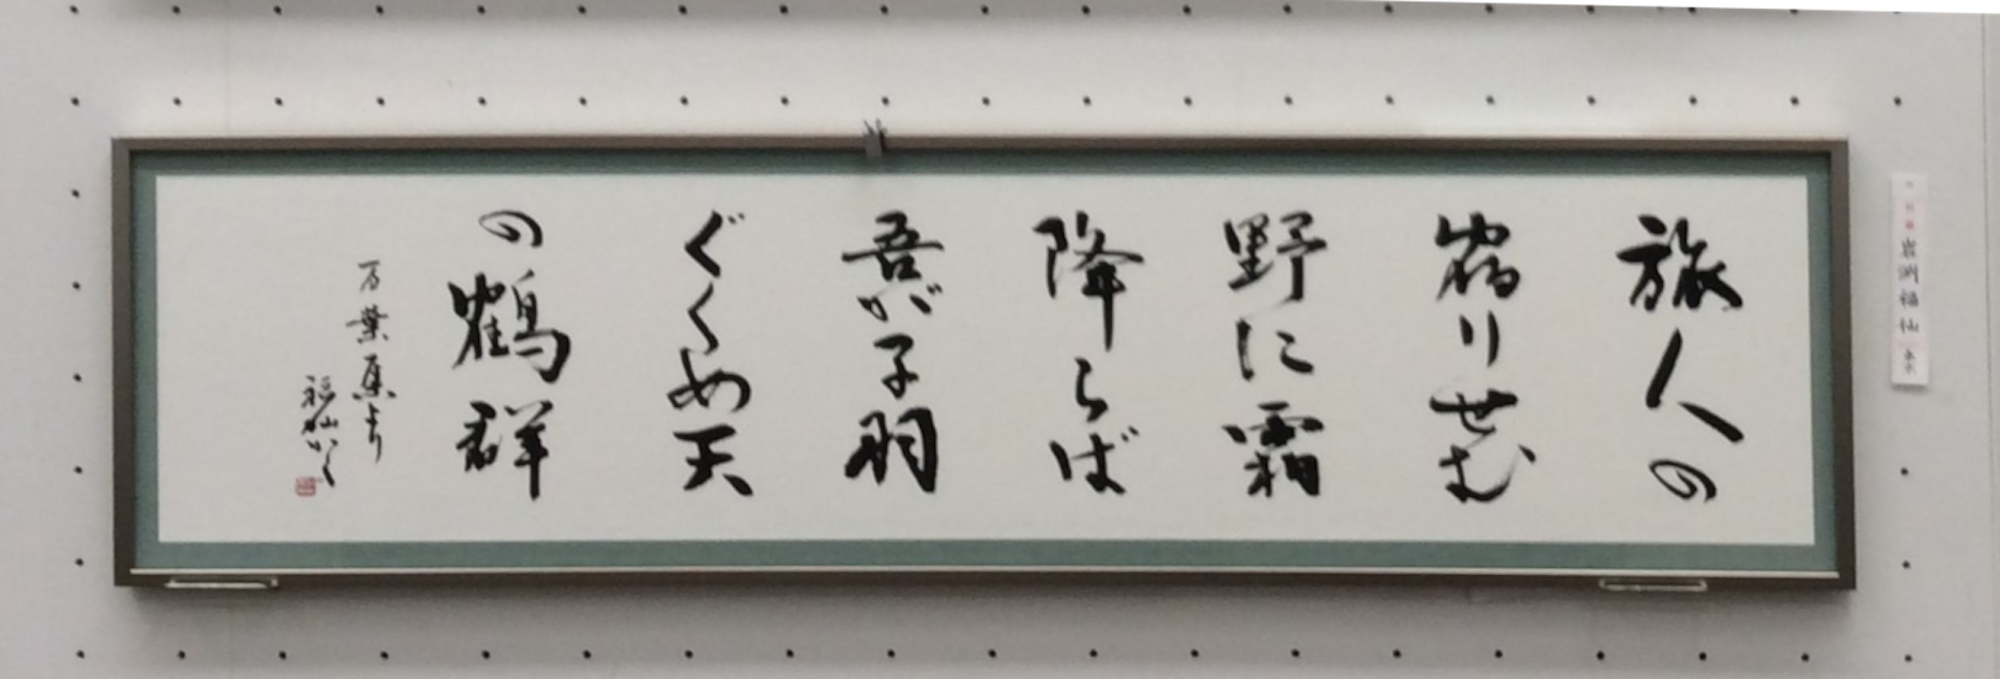 旅人の
宿りせむ
野に霜
降らば
吾が子羽
ぐくめ天
の鶴群
万葉集より
福仙かく
岩渕福仙